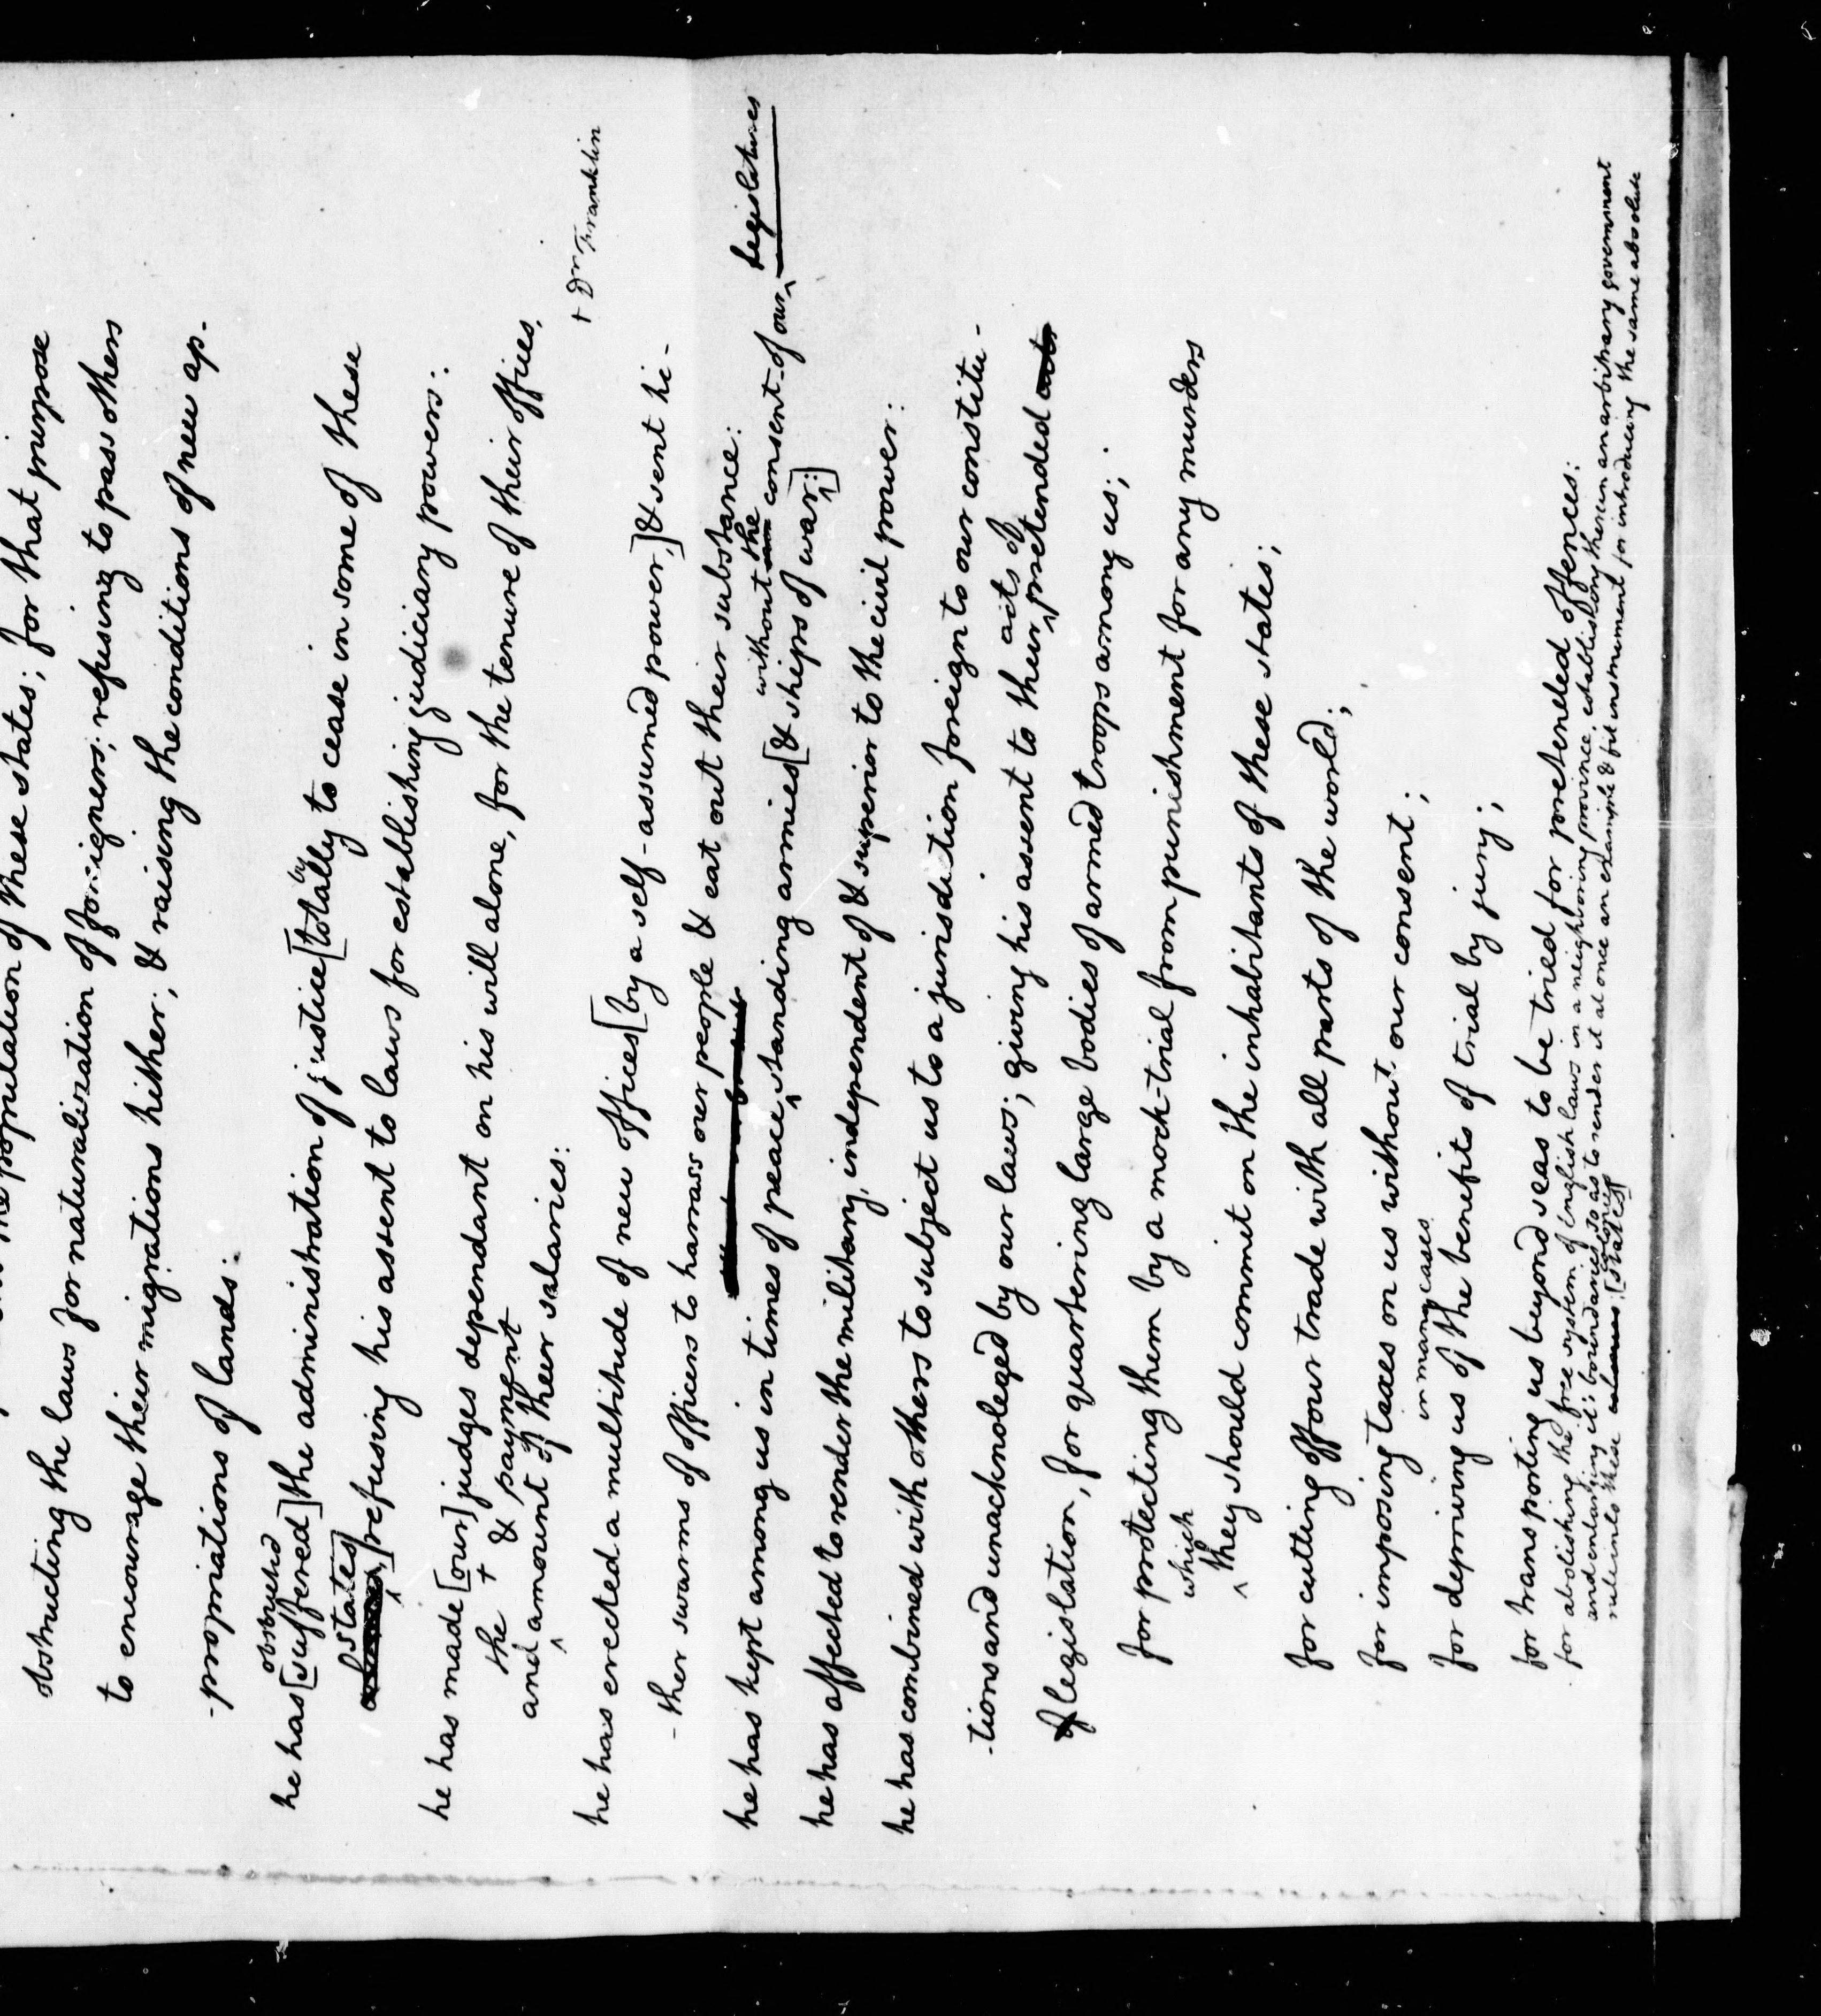 the population of these states; for that purpose
obstructing the laws for naturalization of foreigners; refusing to pass others
to encourage their migrations hither; & raising the conditions of new ap-
-propriations of lands:
obstructed
he has [suffered] the administration of justice [totally to cease in some of these
by
[states]
refusing his assent to laws for establishing judiciary powers:
he has made [our] judges dependant on his will alone, for the tenure of their offices,
the + & payment
and amount of their salaries:
+ Dr. Franklin
he has erected a multitude of new offices [by a self-assumed power,] & sent hi-
-ther swarms of officers to harrass our people & eat out their substance:
without the consent of our Legislatures
he has kept among us in times of peace standing armies [& ships of war;]
he has affected to render the military, independent of & superior to the civil power:
he has combined with others to subject us to a jurisdiction foreign to our constitu-
-tions and unacknoleged by our laws; giving his assent to their pretended acts
acts of
of legislation, for quartering large bodies of armed troops among us;
for protecting them by a mock-trial from punishment for any murders
which
they should commit on the inhabitants of these states;
for cutting off our trade with all parts of the world;
for imposing taxes on us without our consent;
in many cases
for depriving us of the benefits of trial by jury;
for transporting us beyond seas to be tried for pretended offences:
for abolishing the free system of English laws in a neighboring province, establishing therein an arbitrary government
and enlarging it's boundaries so as to render it at once an example & fit instrument for introducing the same absolute
colonies
rule into these colonies; [states]